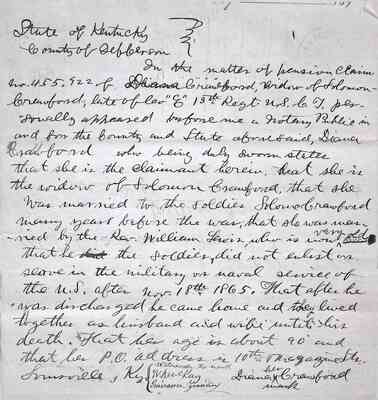 State of Kentucky
County of Jefferson
In the matter of pension claim
no. 455.922 of Diana Crawford, Widow of Solomon
Crawford, late of Co "E" 15th Regt U.S.C.I. per-
sonally appeared before me a Notary Public in
and for the County and State aforesaid, Diana
Crawford who being duly sworn states
that she is the claimant herein, that she is
the widow of Solomon Crawford, that she
was married to the soldier Solomon Crawford
many years before the war, that she was mar-
ried by the Rev. William Lewis, who is now very old
that he the soldier, did not enlist or
serve in the military or naval service of
the U.S. after Nov. 18th 1865. That after he
was discharged he came home and they lived
together as husband and wife until his
death. That her age is about 90 and
that her P.O. address is 10th & Magazine Sts.
Louisville, Ky.
Diana her Crawford
mark